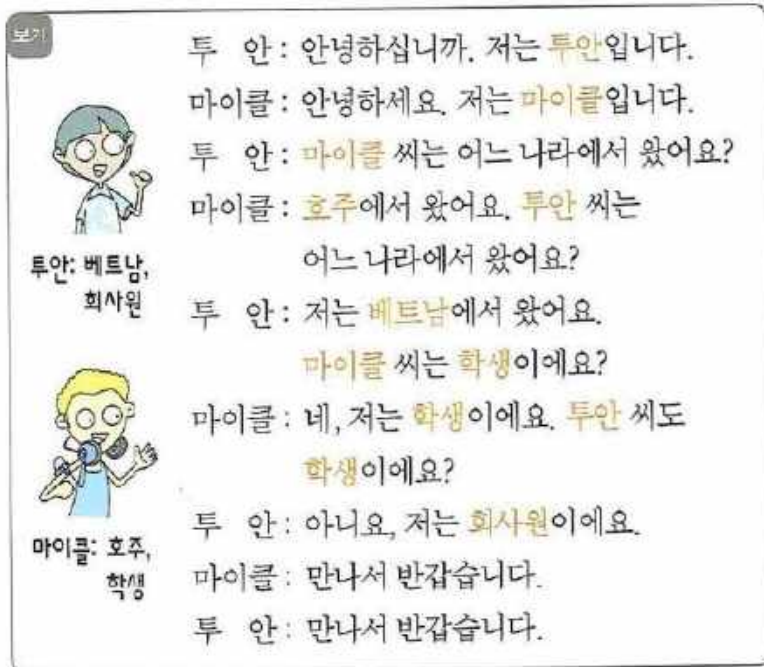 보기
투 안 : 안녕하십니까. 저는 투안입니다.
마이클 : 안녕하세요. 저는 마이클입니다.
투 안 : 마이클 씨는 어느 나라에서 왔어요?
마이클 : 호주에서 왔어요. 투안 씨는
어느 나라에서 왔어요?
투안: 베트남,
회사원
투 안 : 저는 베트남에서 왔어요.
마이클 씨는 학생이에요?
마이클 : 네, 저는 학생이에요. 투안 씨도
학생이에요?
마이클: 호주,
학생
투 안 : 아니요, 저는 회사원이에요.
마이클 : 만나서 반갑습니다.
투 안 : 만나서 반갑습니다.